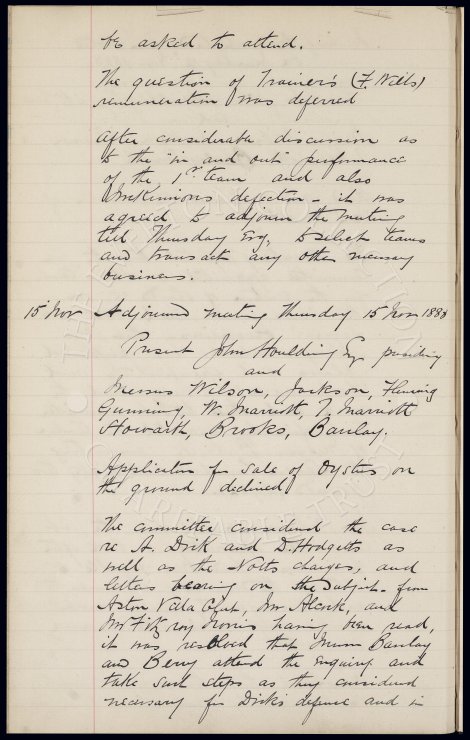 be asked to attend.
The question of Trainer's (F. Wells)
remuneration was deferred
After considerable discussion as
to the "in and out" performance
of the 1st team and also
McKinnions defection - it was
agreed to adjourn the meeting
till Thursday Evg, to select teams
and transact any other necessary
business.
15 Nov Adjourned meeting Thursday 15 Nov 1888
Present John Houlding Esq presiding
and
Messrs Wilson, Jackson, Fleming
Gunning, W. Marriott, T. Marriott
Howarth, Brooks, Barclay.
Application for sale of Oysters on
the ground declined
The committee considered the case
re A. Dick and D. Hodgetts as
well as the Notts charges, and
letters bearing on the subject from
Aston Villa Club, Mr Alcock, and
Mr Fitzroy Norris having been read,
it was resolved that Messrs Barclay
and Berry attend the enquiry and
take such steps as they considered
necessary for Dicks defence and in